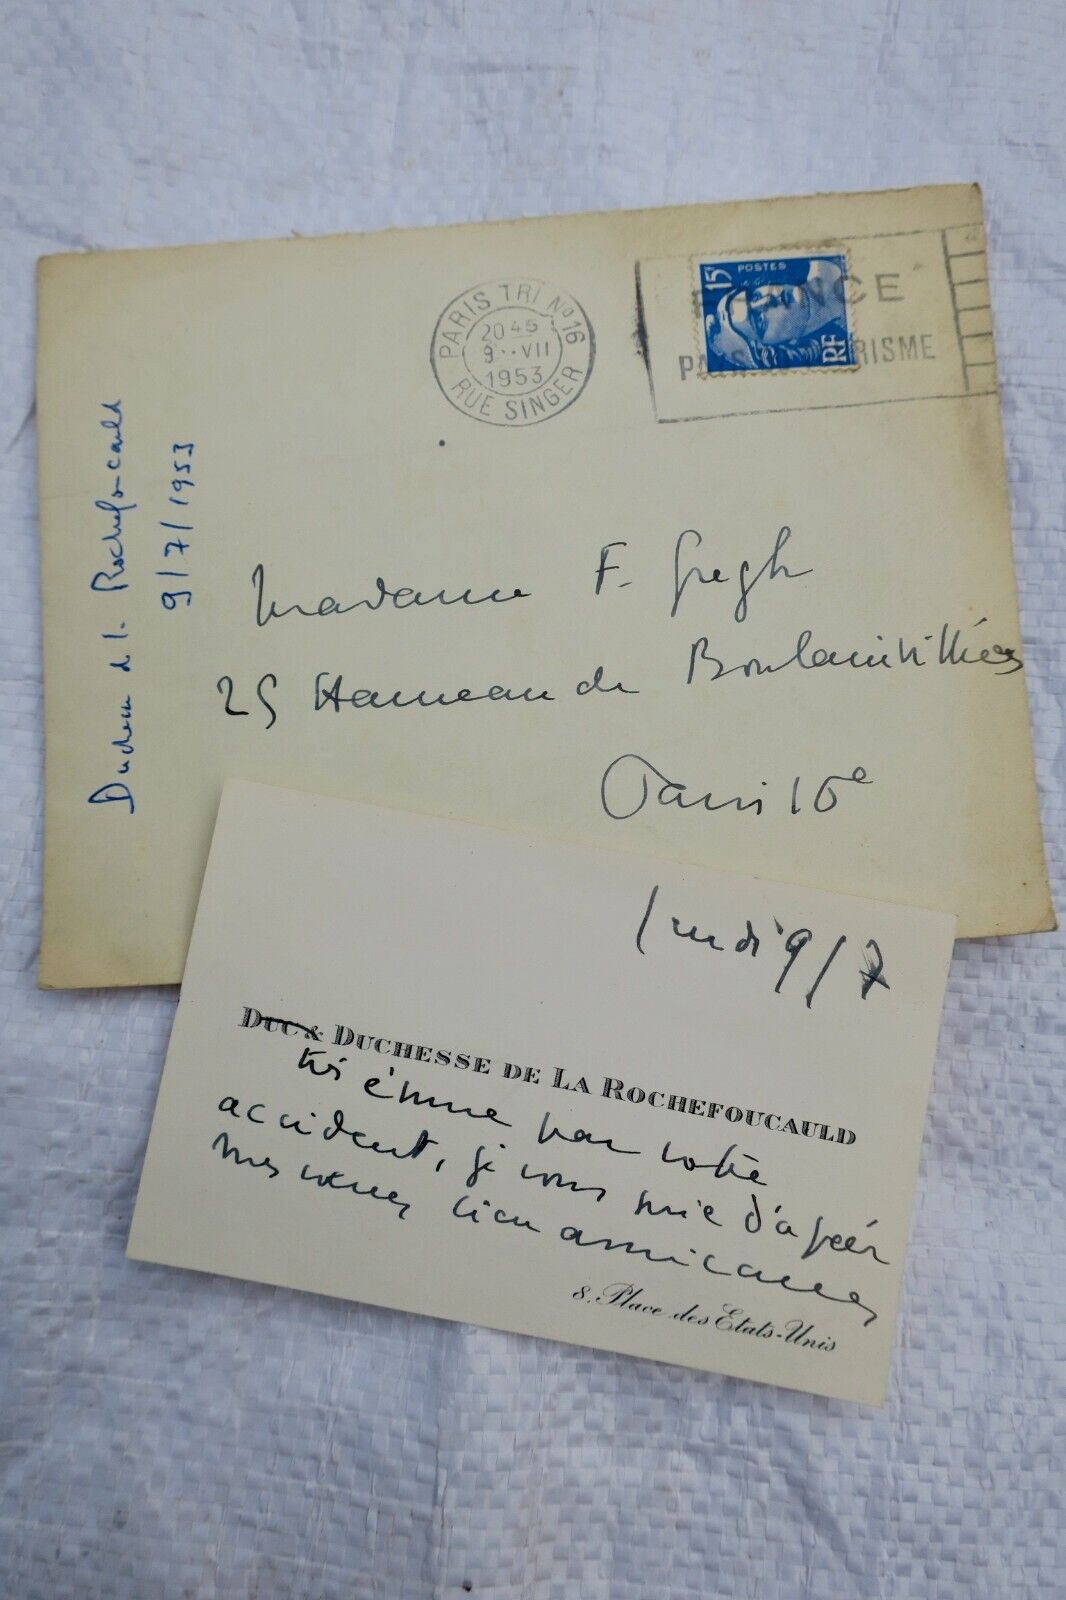 PARIS TRI Nº 16
20 45
9 · VII
1953
RUE SINGER
15F
POSTES
RF
FRANCE
TOURISME
9/7/1953
Madame F. Gregh
25 Hameau de Boulainvilliers
Paris 16e
9/7
DUC & DUCHESSE DE LA ROCHEFOUCAULD
très émue par votre
accident, je vous prie d'agréer
mes voeux bien amicaux
8. Place des Etats-Unis